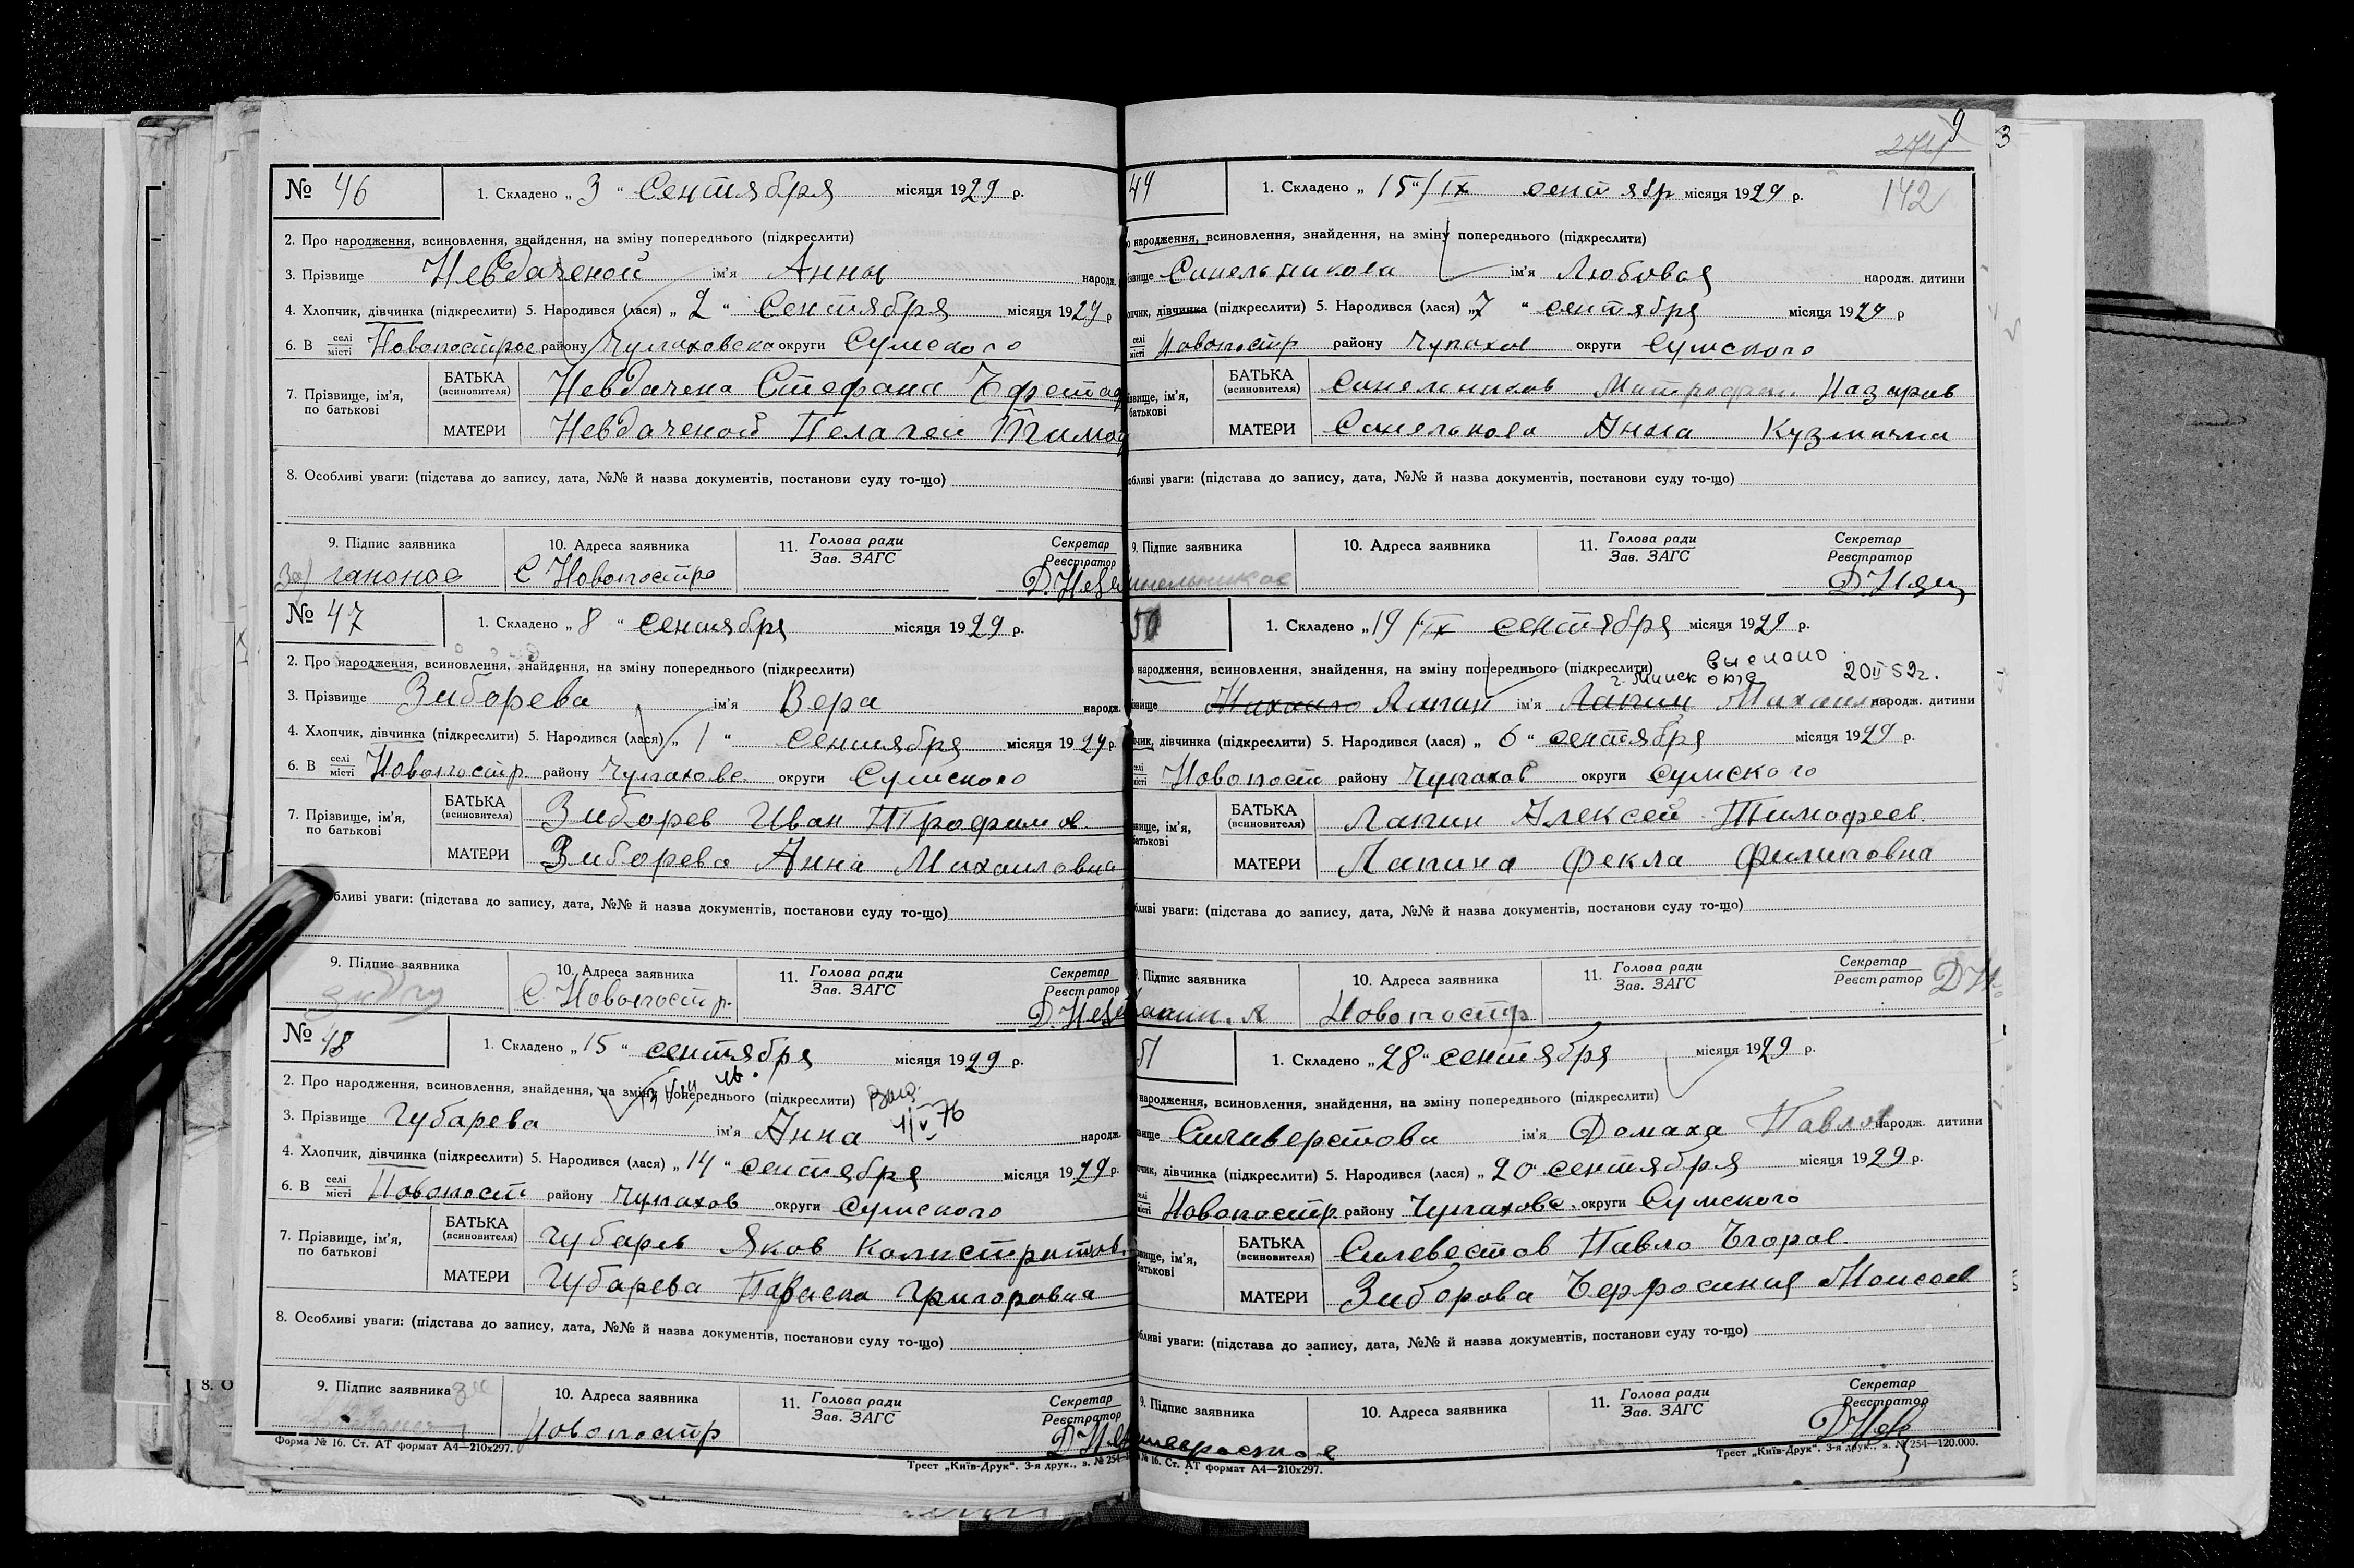 № 46
1. Складено „ 3 “ Сентября місяця 1929 р.
2. Про народження, всиновлення, знайдення, на зміну попереднього (підкреслити)
3. Прізвище Невдаченой ім'я Анна народж.
4. Хлопчик, дівчинка (підкреслити) 5. Народився (лася) „ 2 “ Сентября місяця 1929 р
6. В селі місті Новопострое району Чупаховска округи Сумского
7. Прізвище, ім'я, по батькові
БАТЬКА (всиновителя) Невдачена Стефана
МАТЕРИ Невдаченой Пелагеи Тимоф
8. Особливі уваги: (підстава до запису, дата, №№ й назва документів, постанови суду то-що)
9. Підпис заявника
10. Адреса заявника
11. Голова ради Зав. ЗАГС
Секретар Реєстратор
С Новопостро
№ 47
1. Складено „ 8 “ сентября місяця 1929 р.
2. Про народження, всиновлення, знайдення, на зміну попереднього (підкреслити)
3. Прізвище Зиборева ім'я Вера народж.
4. Хлопчик, дівчинка (підкреслити) 5. Народився (лася) „ 1 “ Сентября місяця 1929 р.
6. В селі місті Новопостр. району Чупахове округи Сумского
7. Прізвище, ім'я, по батькові
БАТЬКА (всиновителя) Зиборев Иван Трофимов
МАТЕРИ Зиборева Анна Михаиловна
бливі уваги: (підстава до запису, дата, №№ й назва документів, постанови суду то-що)
9. Підпис заявника
10. Адреса заявника
11. Голова ради Зав. ЗАГС
Секретар Реєстратор
С Новопостр.
№ 48
1. Складено „ 15 “ сентября місяця 1929 р.
2. Про народження, всиновлення, знайдення, на зміну попереднього (підкреслити)
3. Прізвище Губарева ім'я Анна народж.
4. Хлопчик, дівчинка (підкреслити) 5. Народився (лася) „ 14 “ сентября місяця 1929 р.
6. В селі місті Новопост району Чупахов округи Сумского
7. Прізвище, ім'я, по батькові
БАТЬКА (всиновителя) Губарев Яков Калистратов
МАТЕРИ Губарева Параска Григоровна
8. Особливі уваги: (підстава до запису, дата, №№ й назва документів, постанови суду то-що)
9. Підпис заявника
10. Адреса заявника
11. Голова ради Зав. ЗАГС
Секретар Реєстратор
Новопостр
Форма № 16. Ст. АТ формат А4—210х297.
Трест „Київ-Друк“. 3-я друк., з. № 254
142
1. Складено „ 15 “/IX сентябр місяця 1929 р.
народження, всиновлення, знайдення, на зміну попереднього (підкреслити)
Синельникова ім'я Любовь народж. дитини
дівчинка (підкреслити) 5. Народився (лася) „ 7 “ сентября місяця 1929 р
Новопостр району Чупахов округи Сумского
БАТЬКА (всиновителя) Синельников Митрофан Назаров
МАТЕРИ Синелькова Анна Кузминична
уваги: (підстава до запису, дата, №№ й назва документів, постанови суду то-що)
9. Підпис заявника
10. Адреса заявника
11. Голова ради Зав. ЗАГС
Секретар Реєстратор
50
1. Складено „ 19 /IX сентября місяця 1929 р.
народження, всиновлення, знайдення, на зміну попереднього (підкреслити)
выслано 20 II 52г.
г. Минск
Михаило Лапин ім'я Лапин Михаил народж. дитини
дівчинка (підкреслити) 5. Народився (лася) „ 6 “ сентября місяця 1929 р.
Новопост району Чупахов округи Сумского
БАТЬКА (всиновителя) Лапин Алексей Тимофеев.
МАТЕРИ Лапина Фекла Филиповна
уваги: (підстава до запису, дата, №№ й назва документів, постанови суду то-що)
Підпис заявника
10. Адреса заявника
11. Голова ради Зав. ЗАГС
Секретар Реєстратор
Новопостр
51
1. Складено „ 28 “ сентября місяця 1929 р.
народження, всиновлення, знайдення, на зміну попереднього (підкреслити)
Силиверстова ім'я Домаха Павлов народж. дитини
дівчинка (підкреслити) 5. Народився (лася) „ 20 “ сентября місяця 1929 р.
Новопостр. району Чупахова. округи Сумского
БАТЬКА (всиновителя) Силевестов Павло Егоров
МАТЕРИ Зиборова Ефросиния Моисеев
уваги: (підстава до запису, дата, №№ й назва документів, постанови суду то-що)
9. Підпис заявника
10. Адреса заявника
11. Голова ради Зав. ЗАГС
Секретар Реєстратор
№ 16. Ст. АТ формат А4—210х297.
Трест „Київ-Друк“. 3-я друк., з. № 254—120.000.